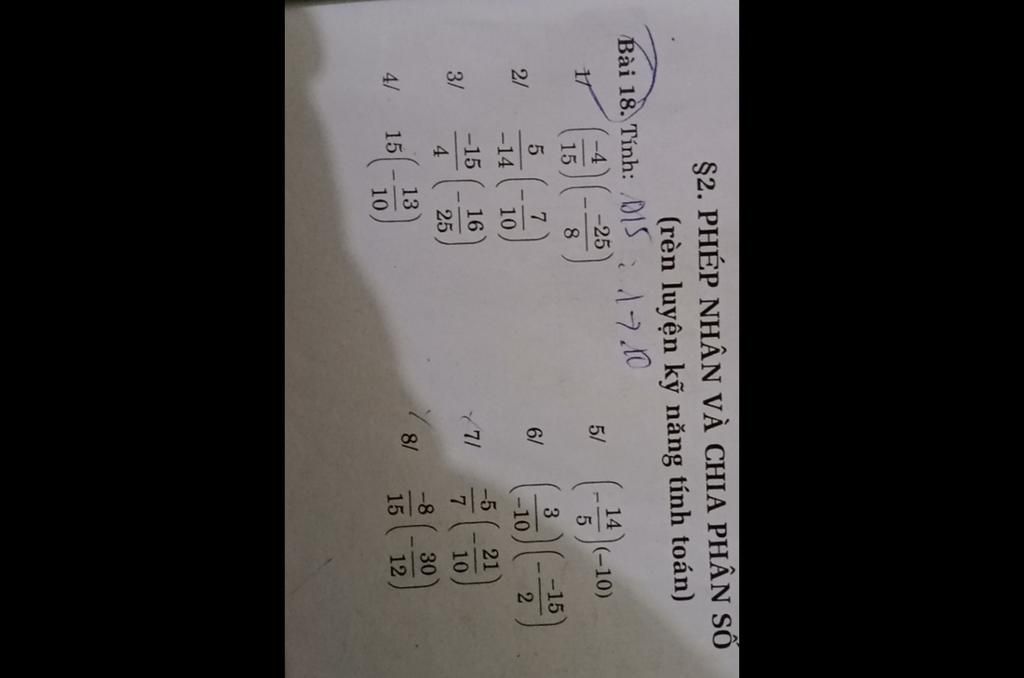 §2. PHÉP NHÂN VÀ CHIA PHÂN SỐ
(rèn luyện kỹ năng tính toán)
Bài 18. Tính: 1 → 10
1/ (-4/15)(- -25/8)
2/ 5/-14 (- 7/10)
3/ -15/4 (- 16/25)
4/ 15(- 13/10)
5/ (- 14/5)(-10)
6/ (3/-10)(- -15/2)
7/ -5/7 (- 21/10)
8/ -8/15 (- 30/12)